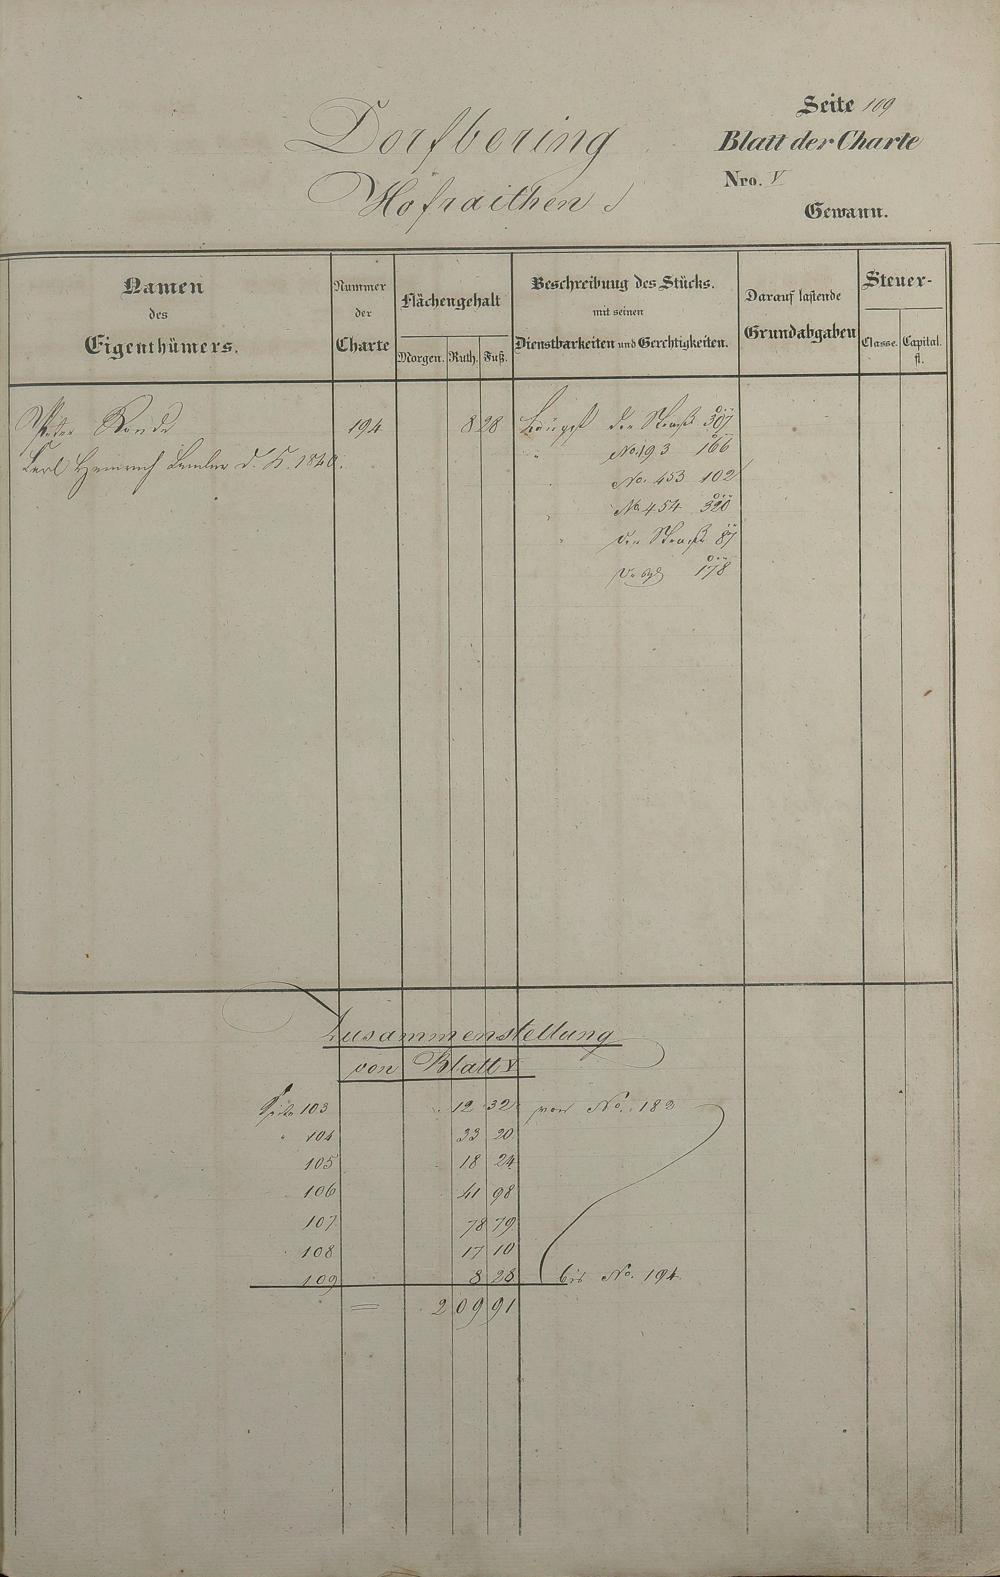 Seite 109
Dorfbering
Blatt der Charte
Nro. V
Hofraithen
Gewann.
Namen des Eigenthümers.
Nummer der Charte
Flächengehalt
Morgen. Ruth. Fuß.
Beschreibung des Stücks.
mit seinen
Dienstbarkeiten und Gerechtigkeiten.
Darauf lastende
Grundabgaben
Steuer-
Classe. Capital.
fl.
Peter 194 8 28 Längst der Straß 307
Carl Heinrich d. H. 1820. " No. 193 166
No. 453 102
" No. 454 320
" der Straß 87
178
Zusammenstellung
von Blatt V
Seite 103 12 32 von No. 182
" 104 33 20
105 18 24
106 41 98
107 78 79
108 17 10
109 8 28 bis No. 194
= 209 91